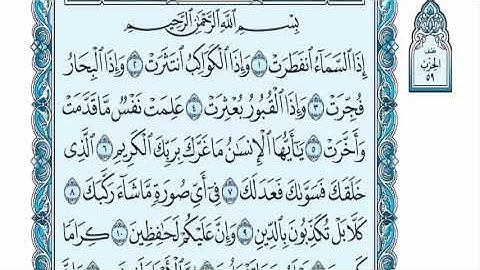 بِسْمِ ٱللَّهِ ٱلرَّحْمَٰنِ ٱلرَّحِيمِ
إِذَا ٱلسَّمَآءُ ٱنفَطَرَتْ ١ وَإِذَا ٱلْكَوَاكِبُ ٱنتَثَرَتْ ٢ وَإِذَا ٱلْبِحَارُ
فُجِّرَتْ ٣ وَإِذَا ٱلْقُبُورُ بُعْثِرَتْ ٤ عَلِمَتْ نَفْسٌ مَّا قَدَّمَتْ
وَأَخَّرَتْ ٥ يَٰٓأَيُّهَا ٱلْإِنسَٰنُ مَا غَرَّكَ بِرَبِّكَ ٱلْكَرِيمِ ٦ ٱلَّذِى
خَلَقَكَ فَسَوَّىٰكَ فَعَدَلَكَ ٧ فِىٓ أَىِّ صُورَةٍ مَّا شَآءَ رَكَّبَكَ ٨
كَلَّا بَلْ تُكَذِّبُونَ بِٱلدِّينِ ٩ وَإِنَّ عَلَيْكُمْ لَحَٰفِظِينَ ١٠ كِرَامًا
نصف
الحزب
٥٩